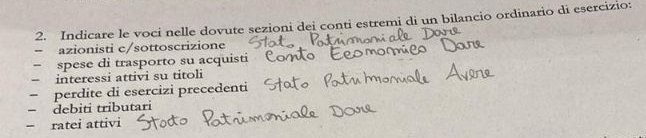 2. Indicare le voci nelle dovute sezioni dei conti estremi di un bilancio ordinario di esercizio:
– azionisti c/sottoscrizione Stato Patrimoniale Dare
– spese di trasporto su acquisti Conto Economico Dare
– interessi attivi su titoli
– perdite di esercizi precedenti Stato Patrimoniale Avere
– debiti tributari
– ratei attivi Stato Patrimoniale Dare